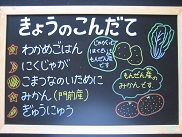 きょうのこんだて
わかめごはん
にくじゃが
こまつなのいために
みかん(門前産)
ぎゅうにゅう
じゃがいも
はくさいは
もんぜん産
です
もんぜん産の
みかんです。